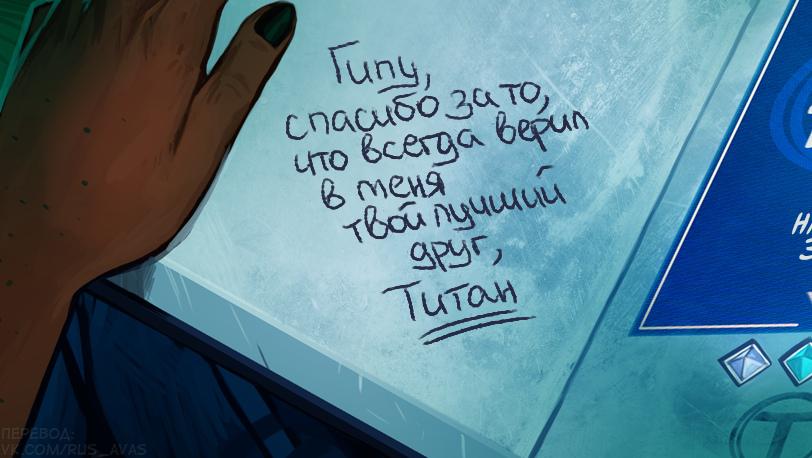 Гипу,
спасибо за то,
что всегда верил
в меня
твой лучший
друг,
Титан
ПЕРЕВОД:
VK.COM/RUS_AVAS